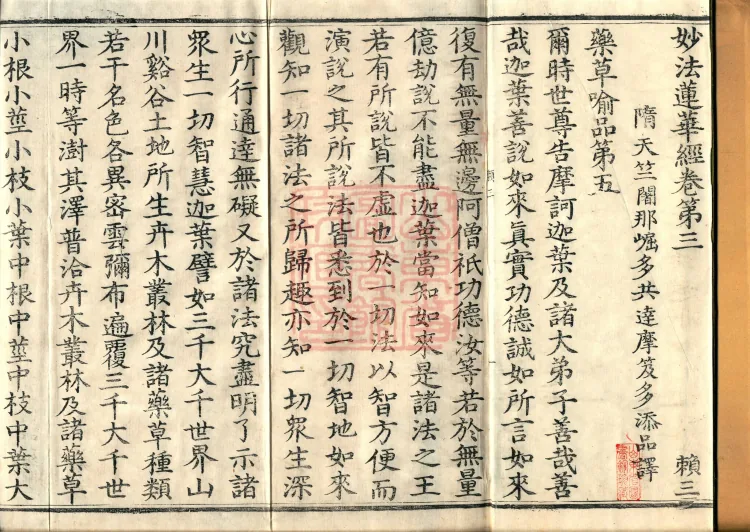 妙法蓮華經卷第三 賴三
隋天竺闍那崛多共達摩笈多添品譯
藥草喻品第五
爾時世尊告摩訶迦葉及諸大弟子善哉善
哉迦葉善說如來眞實功德誠如所言如來
復有無量無邊阿僧祇功德汝等若於無量
億劫說不能盡迦葉當知如來是諸法之王
若有所說皆不虛也於一切法以智方便而
演說之其所說法皆悉到於一切智地如來
觀知一切諸法之所歸趣亦知一切眾生深
心所行通達無礙又於諸法究盡明了示諸
眾生一切智慧迦葉譬如三千大千世界山
川谿谷土地所生卉木叢林及諸藥草種類
若干名色各異密雲彌布遍覆三千大千世
界一時等澍其澤普洽卉木叢林及諸藥草
小根小莖小枝小葉中根中莖中枝中葉大